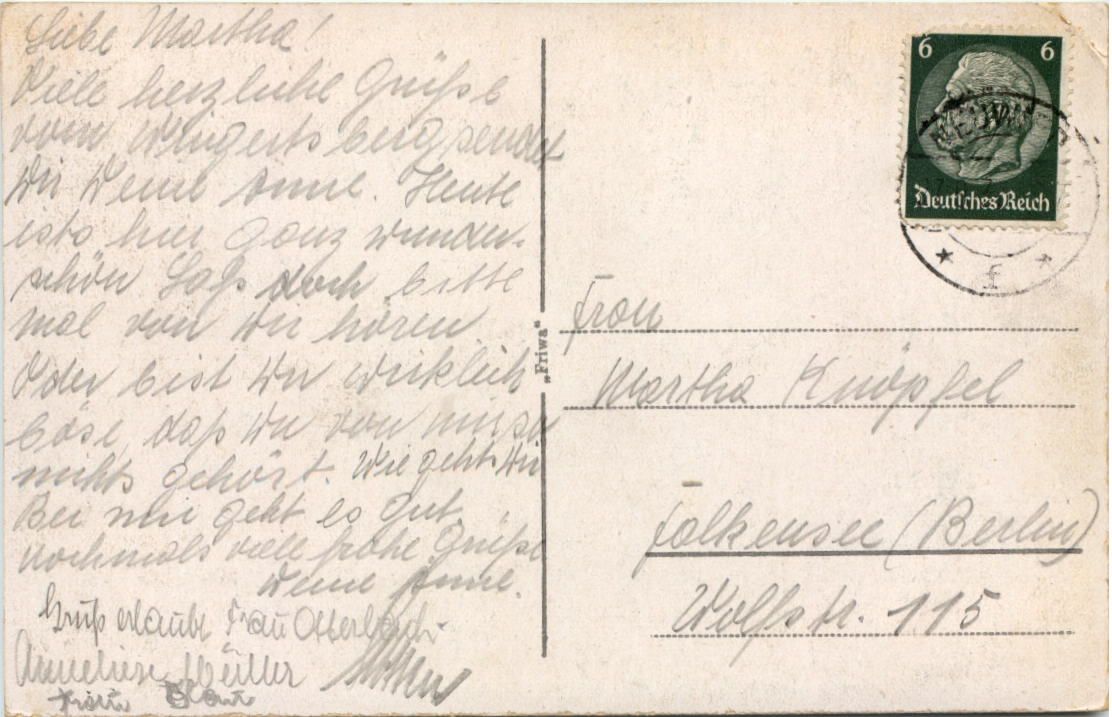 Liebe Martha!
Viele herzliche Grüße
vom Wingertsberg sendet
Dir Deine Anne. Heute
ists hier ganz wunder-
schön Laß doch bitte
mal von Dir hören
Oder bist Du wirklich
böse, daß Du von mir so
nichts gehört. Wie gehts Dir
Bei mir geht es gut.
Nochmals viele frohe Grüße
Deine Anne.
Gruß erlaubt Frau Otterbach.
Anneliese Müller
6 6
Deutsches Reich
f
„Friwa"
Frau
Martha Knöpfel
Falkensee (Berlin)
Wolfstr. 115